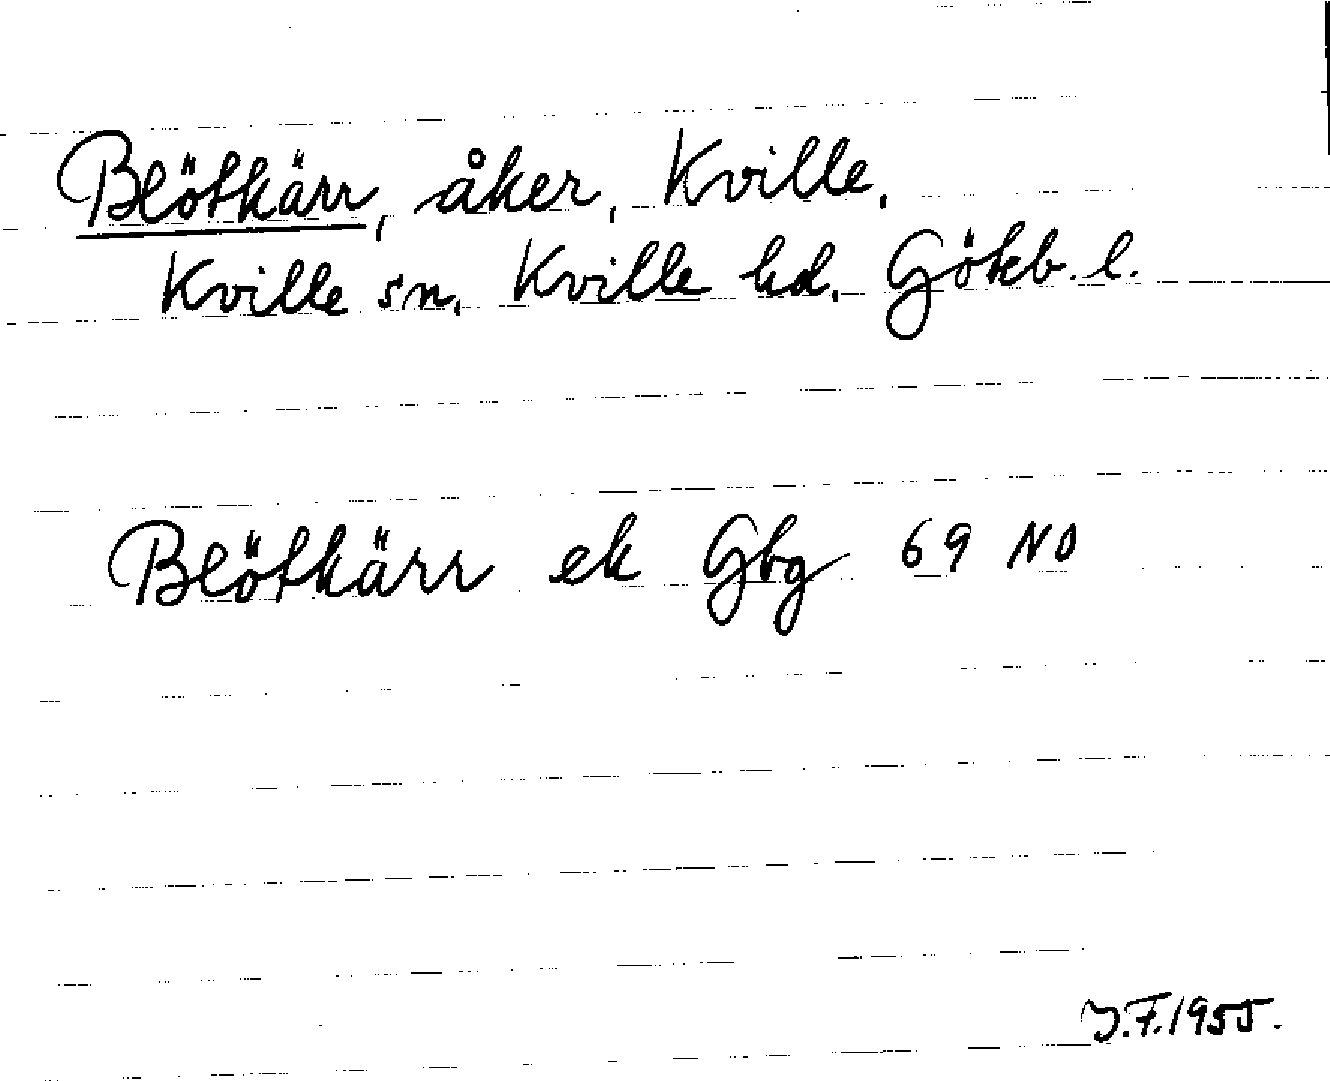 Blötkärr, åker, Kville,
Kville sn, Kville hd. Gökb. l.
Blötkärr ek Gbg 69 NO
J.F. 1955.